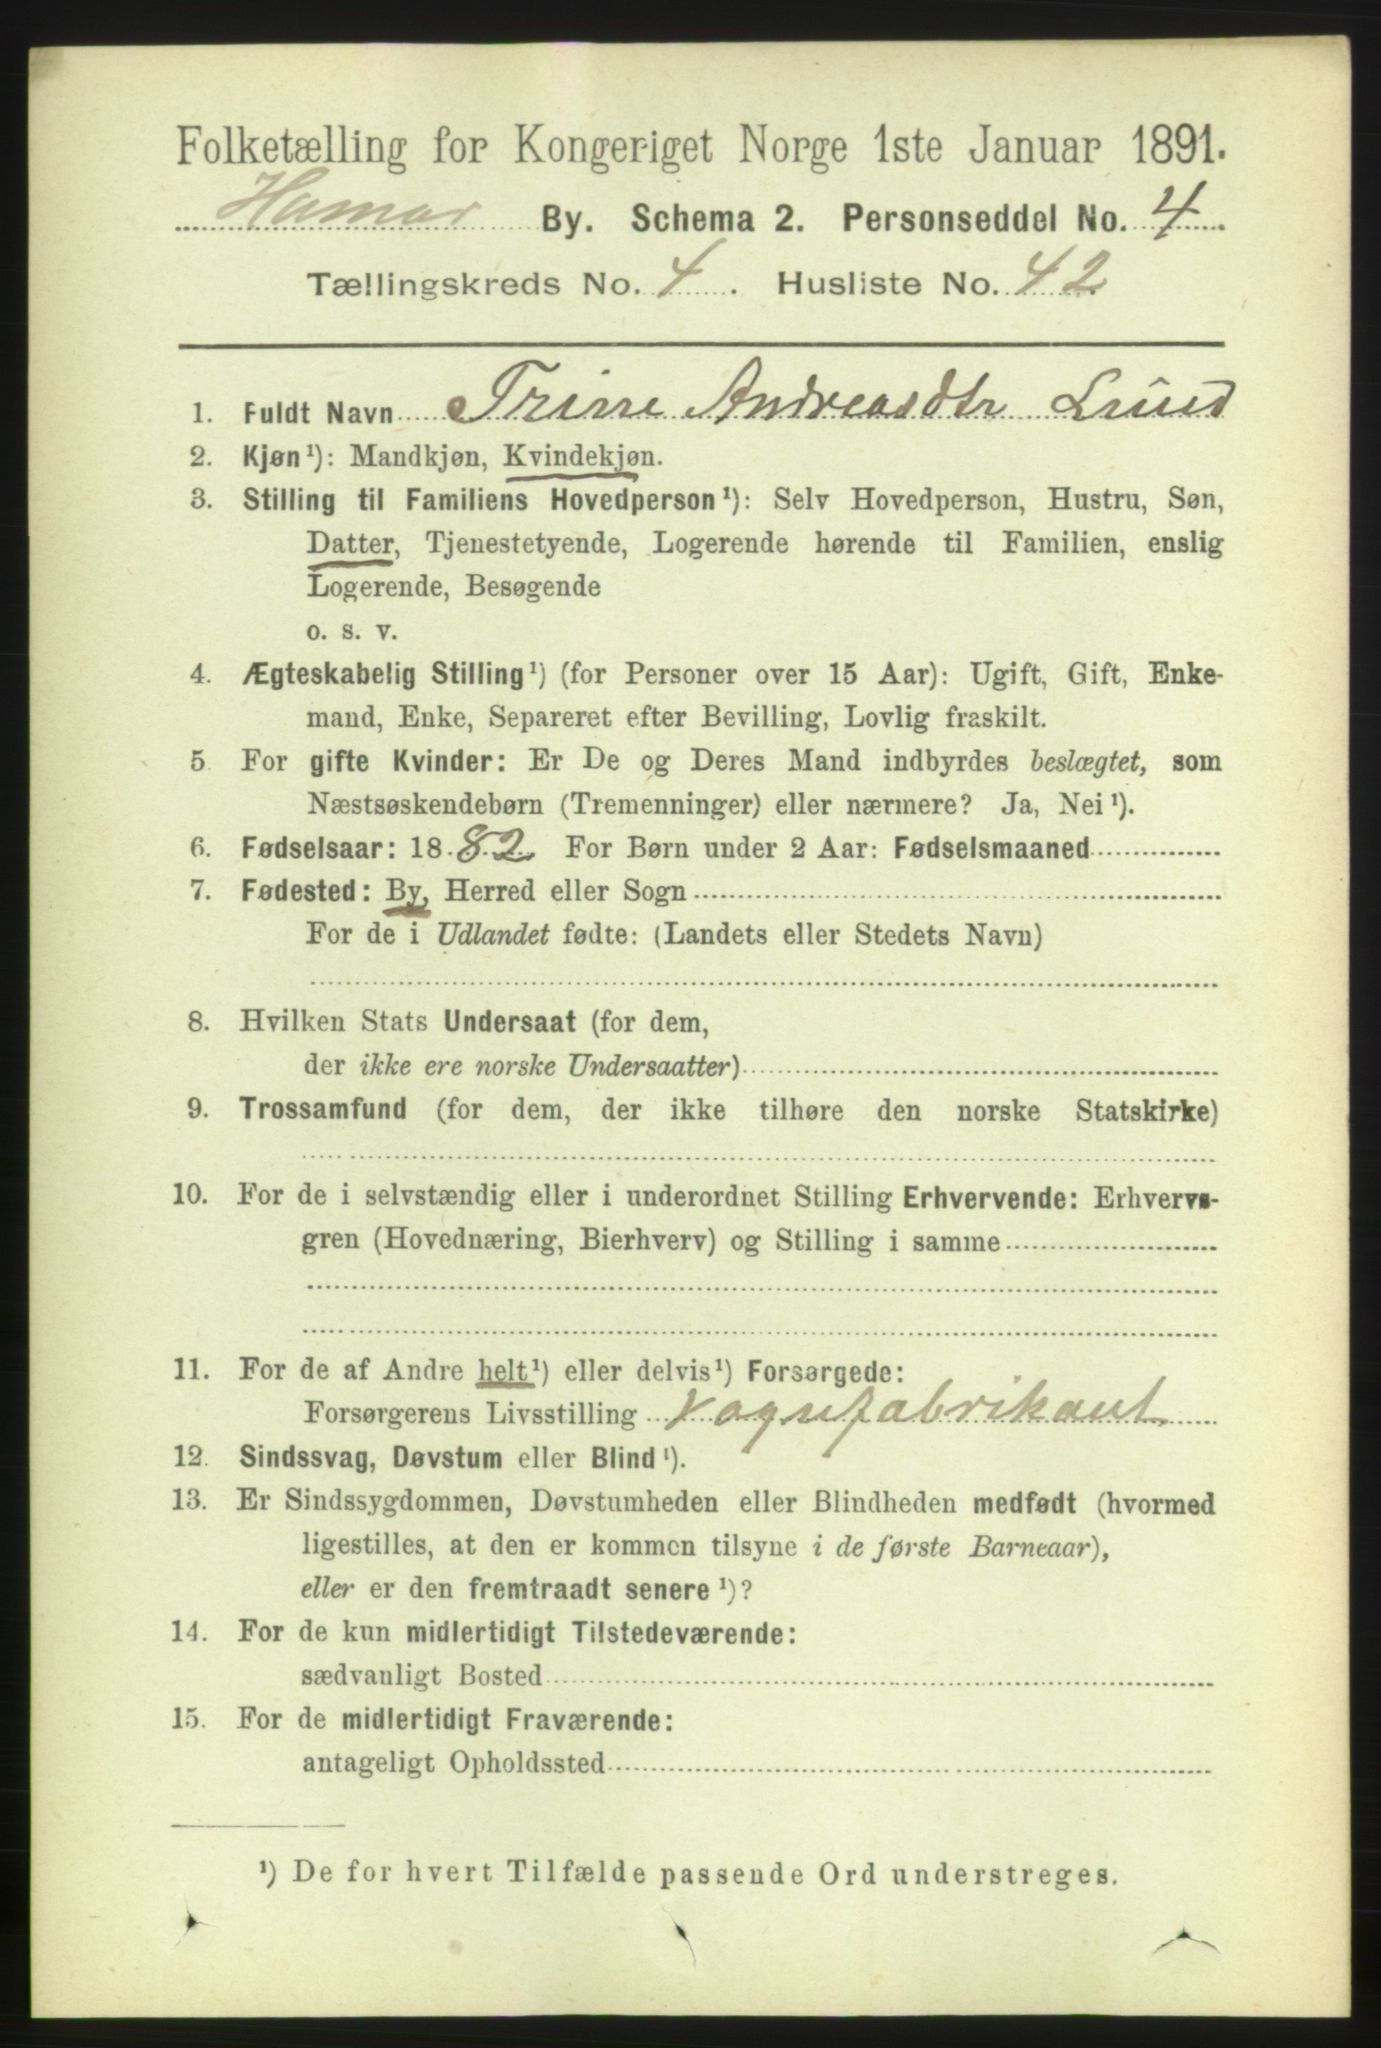 Folketælling for Kongeriget Norge 1ste Januar 1891.
Hamar By. Schema 2. Personseddel No. 4
Tællingskreds No. 4. Husliste No. 42
1. Fuldt Navn Trine Andreasdtr Lund
2. Kjøn¹): Mandkjøn, Kvindekjøn.
3. Stilling til Familiens Hovedperson¹): Selv Hovedperson, Hustru, Søn,
Datter, Tjenestetyende, Logerende hørende til Familien, enslig
Logerende, Besøgende
o. s. v.
4. Ægteskabelig Stilling¹) (for Personer over 15 Aar): Ugift, Gift, Enke-
mand, Enke, Separeret efter Bevilling, Lovlig fraskilt.
5 For gifte Kvinder: Er De og Deres Mand indbyrdes beslægtet, som
Næstsøskendebørn (Tremenninger) eller nærmere? Ja, Nei¹).
6. Fødselsaar: 1882 For Børn under 2 Aar: Fødselsmaaned
7. Fødested: By, Herred eller Sogn
For de i Udlandet fødte: (Landets eller Stedets Navn)
8. Hvilken Stats Undersaat (for dem,
der ikke ere norske Undersaatter)
9. Trossamfund (for dem, der ikke tilhøre den norske Statskirke)
10. For de i selvstændig eller i underordnet Stilling Erhvervende: Erhvervs-
gren (Hovednæring, Bierhverv) og Stilling i samme
11. For de af Andre helt¹) eller delvis¹) Forsørgede:
Forsørgerens Livsstilling Vognfabrikant
12. Sindssvag, Døvstum eller Blind¹).
13. Er Sindssygdommen, Døvstumheden eller Blindheden medfødt (hvormed
ligestilles, at den er kommen tilsyne i de første Barneaar),
eller er den fremtraadt senere¹)?
14. For de kun midlertidigt Tilstedeværende:
sædvanligt Bosted
15. For de midlertidigt Fraværende:
antageligt Opholdssted
¹) De for hvert Tilfælde passende Ord understreges.